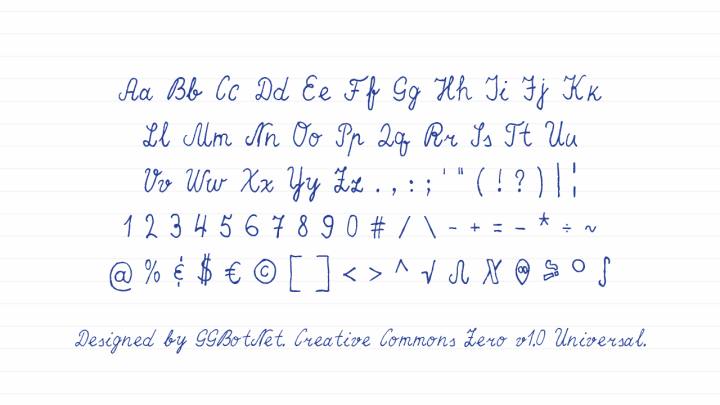 Aa Bb Cc Dd Ee Ff Gg Hh Ii Jj Kk
Ll Mm Nn Oo Pp Qq Rr Ss Tt Uu
Vv Ww Xx Yy Zz . , : ; ' " ( ! ? ) | ¦
1 2 3 4 5 6 7 8 9 0 # / \ - + = – * ÷ ~
@ % & $ € © [ ] < > ^ √ ∫
Designed by GGBotNet. Creative Commons Zero v1.0 Universal.